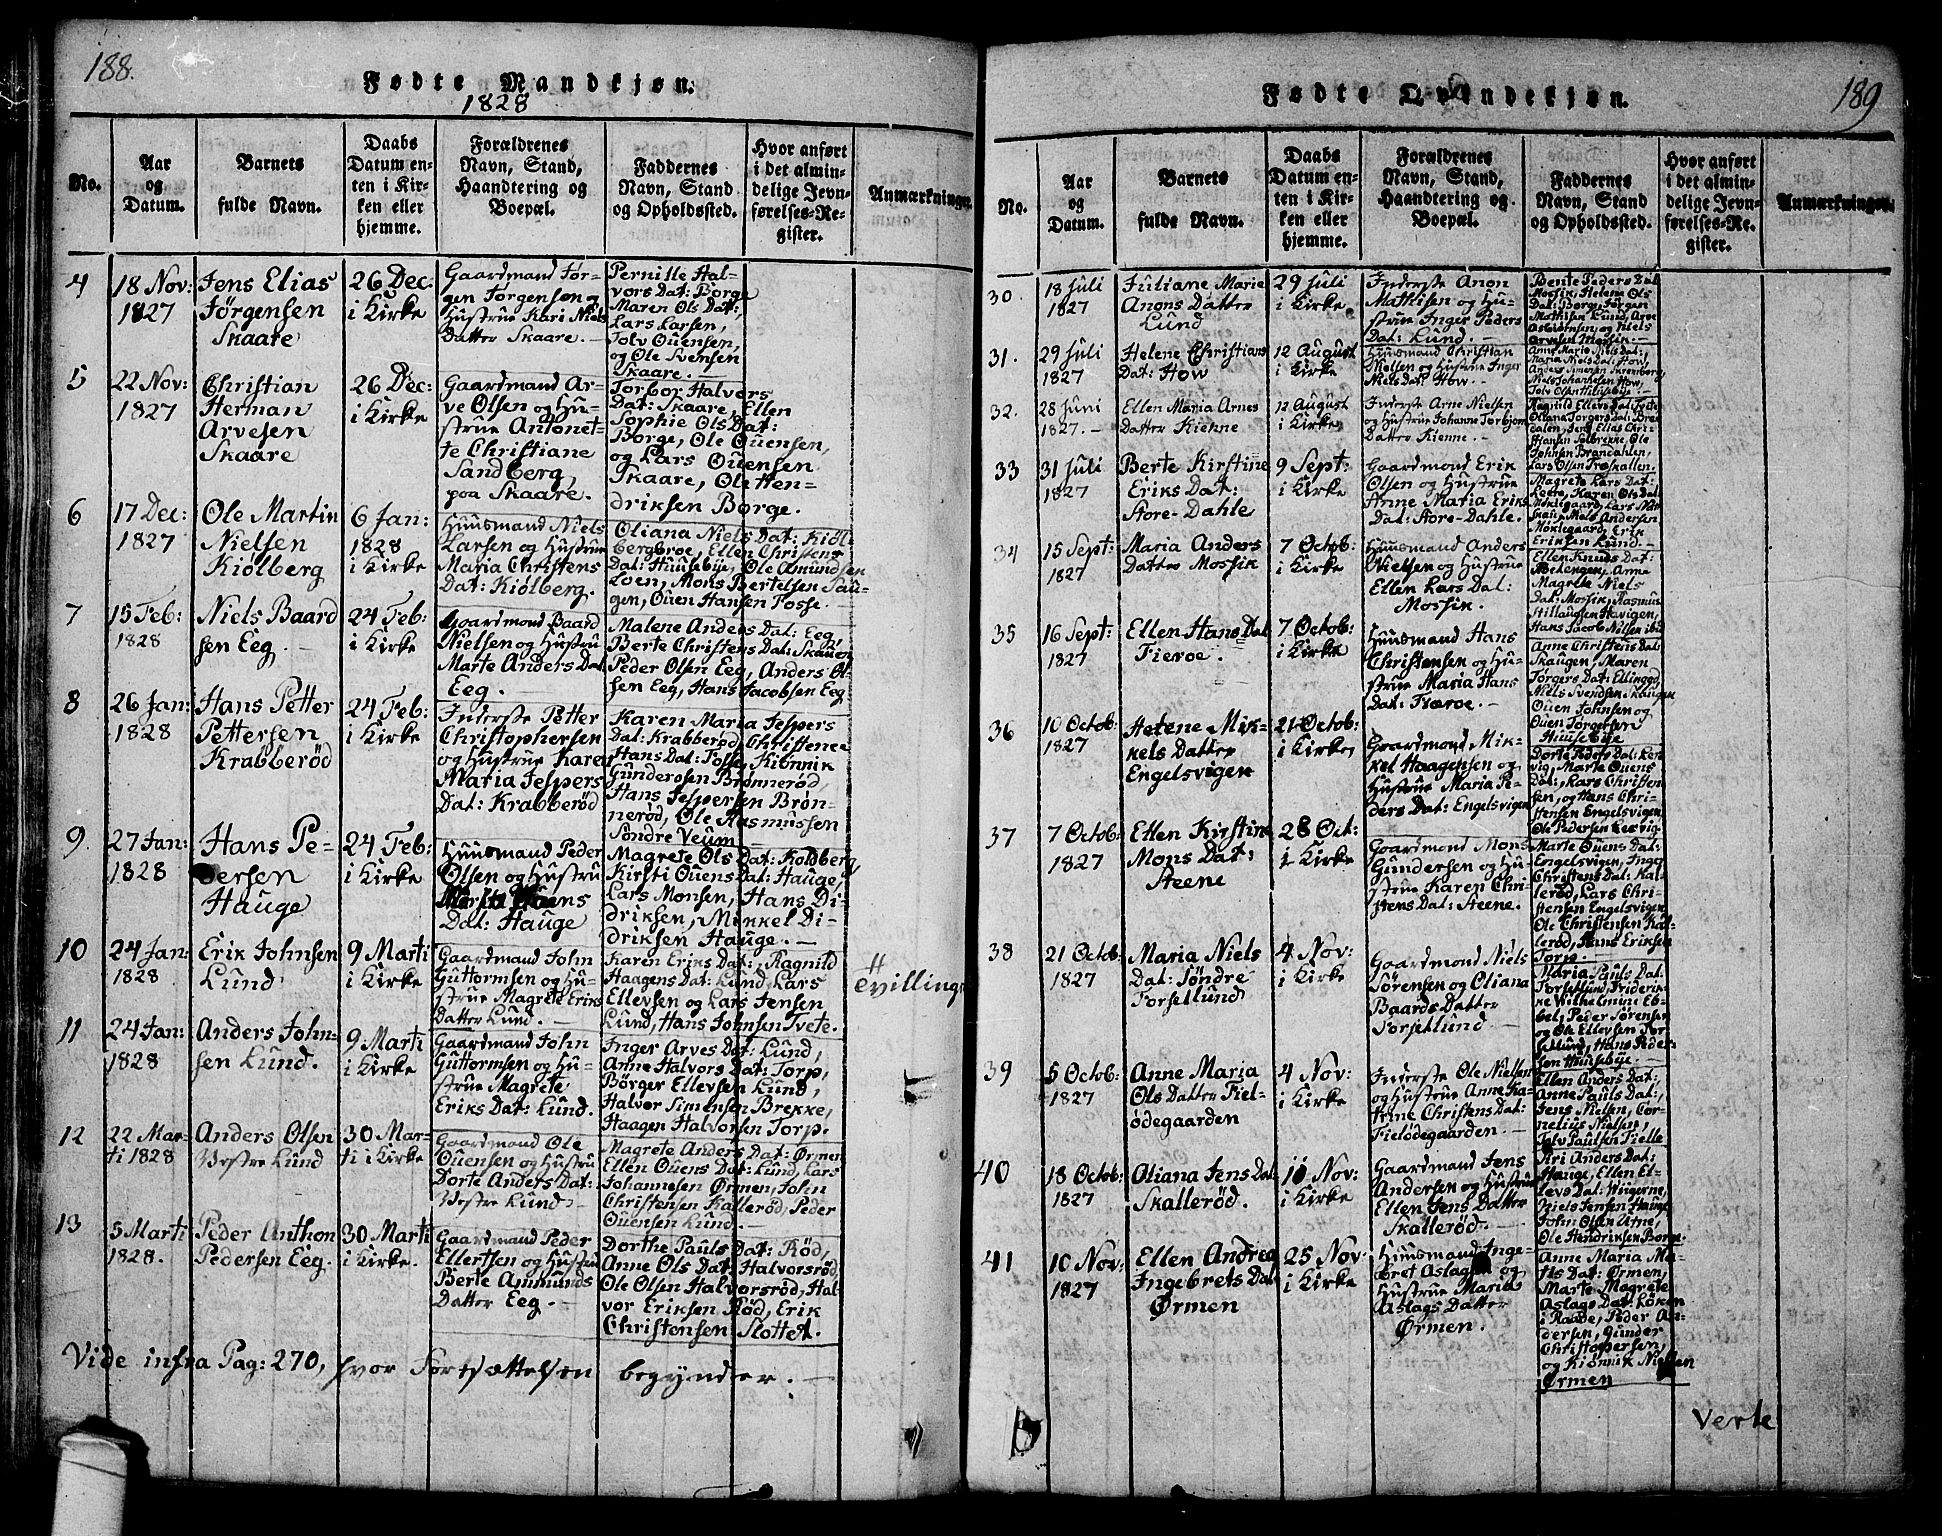 188.
Fødte Mandkjøn.
1828
No.
Aar
og
Datum.
Barnets
fulde Navn.
Daabs
Datum en-
ten i Kir-
ken eller
hjemme.
Forældrenes
Navn, Stand,
Haandtering og
Boepæl.
Faddernes
Navn, Stand
og Opholdssted.
Hvor anført
i det almin-
delige Jevn-
førelses-Re-
gister.
Anmærkninger.
4
18 Nov:
1827
Jens Elias
Jørgensen
Skaare
26 Dec.
i Kirke
Gaardmand Jør-
gen Jørgensen og
Hustrue Kari Niels
Datter Skaare. -
Pernille Hal-
vors Dat: Borge
Maren Ols Dat:
Lars Larsen,
Tolv Ouensen,
og Ole Svensen
Skaare. -
5
22 Nov:
1827
Christian
Herman
Arvesen
Skaare
26 Dec:
i Kirke
Gaardmand Ar-
ve Olsen og Hu-
strue Antonet-
te Christiane
Sandberg,
paa Skaare.
Torbor Halvors
Dat: Skaare, Ellen
Sophie Ols Dat:
Borge, Ole Ouensen,
og Lars Ouensen
Skaare, Ole Hen-
driksen Borge.
6
17 Dec:
1827
Ole Martin
Nielsen
Kiølberg
6 Jan:
1828
i Kirke
Huusmand Niels
Larsen og Hustrue
Maria Christens
Dat: Kiølberg.
Oliana Niels Dat: Kiøl-
bergbroe, Ellen Christens
Dat: Huusebye, Ole Amundsen
Loen, Mons Bertelsen Hau-
gen, Ouen Hansen Fosse. -
7
15 Feb:
1828
Niels Baard
sen Eeg. -
24 Feb:
i Kirke
Gaardmond Baard
Nielsen og Hustru
Marte Anders Dat
Eeg. -
Malene Anders Dat: Eeg,
Berte Christens Dat: Skauen
Peder Olsen Eeg, Anders Ol-
sen Eeg, Hans Jacobsen Eeg
8
26 Jan:
1828
Hans Petter
Pettersen
Krabberød
24 Feb:
i Kirke
Inderste Petter
Christophersen
og Hustrue Karen
Maria Jespers
Dat: Krabberød
Karen Maria Jespers
Dat: Krabberød, Christene
Hans Dat: Fosse, Kiønnik
Gundersen Brønnerød,
Hans Jespersen Brøn-
nerød, Ole Rasmussen
Søndre Veum
9.
27 Jan:
1828
Hans Pe-
dersen
Hauge
24 Feb:
i Kirke
Huusmand Peder
Olsen og Hustru
Ouens
Dat: Hauge
Magrete Ols Dat: Koldberg,
Kirsti Ouens Dat: Hauge,
Lars Monsen, Hans Di-
driksen, Minkel Di-
driksen Hauge. -
10
24 Jan:
1828
Erik Johnsen
Lund
9 Marti
i Kirke
Gaardmand John
Guttormsen og Hu-
strue Magrete Eriks
Datter Lund. -
Karen Eriks Dat:, Ragnild
Haagens Dat: Lund, Lars
Ellevsen og Lars Jensen
Lund, Hans Johnsen Tvete.
Tvillinge
11
24 Jan:
1828
Anders John-
sen Lund.
9 Marti
i Kirke
Gaardmand John
Guttormsen og Hu-
strue Magrete
Eriks Dat: Lund.
Inger Arves Dat: Lund,
Anne Halvors Dat: Torp,
Børger Ellevsen Lund,
Halvor Simensen Brekke,
Haagen Halvorsen Torp.
12
22 Mar-
ti 1828
Anders Olsen
Vestre Lund
30 Mar-
ti i Kirke
Gaardmand Ole
Ouensen og Hustru
Dorte Anders Dat:
Vestre Lund -
Magrete Anders Dat: Ørmen
Ellen Ouens Dat: Lund, Lars
Johannesen Ørmen, John
Christensen Kallerød, Peder
Ouensen Lund.
13
5 Marti
1828.
Peder Anthon
Pedersen Eeg.
30 Marti
i Kirke.
Gaardmand Peder
Ellertsen og Hustru
Berte Ammunds
Datter Eeg. -
Dorthe Pauls Dat: Rød,
Anne Ols Dat: Halvorsrød,
Ole Olsen Halvorsrød, Hal-
vor Eriksen Rød, Erik
Christensen Slottet.
Vide infra Pag: 270, hvor Fortsættelsen begynder. -
189
Fødte Qvindekjøn.
No.
Aar
og
Datum.
Barnets
fulde Navn.
Daabs
Datum en-
ten i Kir-
ken eller
hjemme.
Forældrenes
Navn, Stand,
Haandtering og
Boepæl.
Faddernes
Navn, Stand
og Opholdssted.
Hvor anført
i det almin-
delige Jevn-
førelses-Re-
gister.
Anmærkninger.
30.
18 Juli
1827
Juliane Marie
Anons Datter
Lund
29 Juli
i Kirke
Inderste Anon
Mathisen og Hu-
strue Inger Peders
Dat: Lund. -
Bente Peders Dat
Mossik, Helene Ols
Dat: Borge, Jørgen
Mathisen Lund, Arve
Asbiørnsen, og Niels
Arvesen Mossik. -
31.
29 Juli
1827
Helene Christians
Dat: How
12 August
i Kirke
Huusmand Christian
Nielsen og Hustrue Inger
Niels Dat: How. -
Anne Marie Niels Dat:
Maria Niels Dat: How,
Anders Simensen
Niels Johannesen How,
Tolv Olsen Huusebye
32.
28 Juni
1827. -
Ellen Maria Arnes
Datter Kiehne
12 August
i Kirke
Inderste Arne Nielsen
og Hustrue Johanne Torbjorn
Datter Kienne. -
Ragnild Ellevs Dat: Tvete
Oliana Torgers Dat: Bran-
dalen, Jens Elias Chri-
stiansen Solbrekke, Ole
Johnsen Brandahlen,
Lars Olsen Træskallen.
33
31 Juli
1827
Berte Kirstine
Eriks Dat:
Store-Dahle
9 Sept:
i Kirke
Gaardmand Erik
Olsen og Hustrue
Anne Maria Eriks
Dat: Store-Dahle.
Magrete Lars Dat:
Loere, Karen Ols Dat
Moklegaard, Lars
Niels Andersen
Moklegaard, Erik
Eriksen Lund. -
34
15 Sept:
1827
Maria Anders
Datter Mossik
7 Octob:
i Kirke
Huusmand Anders
Nielsen og Hustrue
Ellen Lars Dat:
Mossik.
Ellen Knuds Dat:
Anne
Magrete Niels
Dat: Mossik, Rasmus
Stillaugsen Havigen,
Hans Jacob Nilsen ibid
35
16 Sept:
1827
Ellen Hans Dat
Fieroe. -
7 Octob:
i Kirke
Huusmand Hans
Christensen og Hu-
strue Maria Hans
Dat: Fieroe. -
Anne Christens Dat
Skaugen, Maren
Torgers Dat: Ellingød,
Niels Svendsen Skaugen
Ouen Johnsen og
Ouen Torgersen
Huusebye
36
10 Octob:
1827
Helene Mik-
kels Datter
Engelsvigen
21 Octob:
i Kirke
Gaardmond Mik-
kel Haagensen og
Hustrue Maria Pe-
ders Dat: Engelsvigen
Dorte Peders Dat: Leer-
vig, Marte Ouens
Dat:, Lars Christen
sen, og Hans Chri-
stensen Engelsvigen
Ole Pedersen Leervig
37
7 Octob:
1827
Ellen Kirstine
Mons Dat:
Steene
28 Oct:
i Kirke
Gaardmond Mons
Gundersen og Hu
strue Karen Chri-
stens Dat: Steene.
Marte Ouens Dat:
Engelsvigen, Inger
Christens Dat: Kal-
lerød, Lars Chri-
stensen Engelsvigen
Ole Christensen Kal-
lerød, Hans Eriksen
Torp. -
38
21 Octob:
1827
Maria Niels
Dat: Søndre
Torsetlund
4 Nov:
i Kirke
Gaardmond Niels
Sørensen og Oliana
Baards Datter
Torsetlund -
Maria Pauls Dat:
Torsetlund, Friderik-
ke Vilhelmine Eb-
bel, Peder Sørensen
og Ole Ellevsen Tor-
setlund, Hans Peder-
sen Huusebye. -
39
5 Octob:
1827
Anne Maria
Ols Datter Fiel-
ødegaarden
4 Nov:
i Kirke
Inderste Ole Nielsen
og Hustrue Anne Ka-
trine Christens Dat:
Fieløddegaarden. -
Ellen Anders Dat:,
Anne Pauls Dat:,
Jens Nielsen, Cor-
nelius Nielsen,
Tolv Paulsen Fielle
40
18 Octob:
1827
Oliana Jens Dat
Skallerød.
10 Nov:
i Kirke
Gaardmand Jens
Andersen og Hustrue
Ellen Jens Datter
Skallerød. -
Siri Anders Dat:
Hauge, Ellen El-
levs Dat: Wiigerne,
Niels Jensen Hauge
John Olsen Utne,
Ole Hendriksen Borge.
41
10 Nov:
1827
Ellen Andrea
Ingebrets Dat
Ørmen
25 Nov:
i Kirke
Huusmand Inge-
bret Aslagsen og
Hustrue Maria
Aslags Datter
Ørmen.
Anne Maria Ma-
tis Dat: Ørmen,
Marte Magrete
Aslags Dat: Løken
i Raade, Peder An-
dersen, Gunder
Christophersen,
og Kiønnik Nielsen
Ørmen
Verte